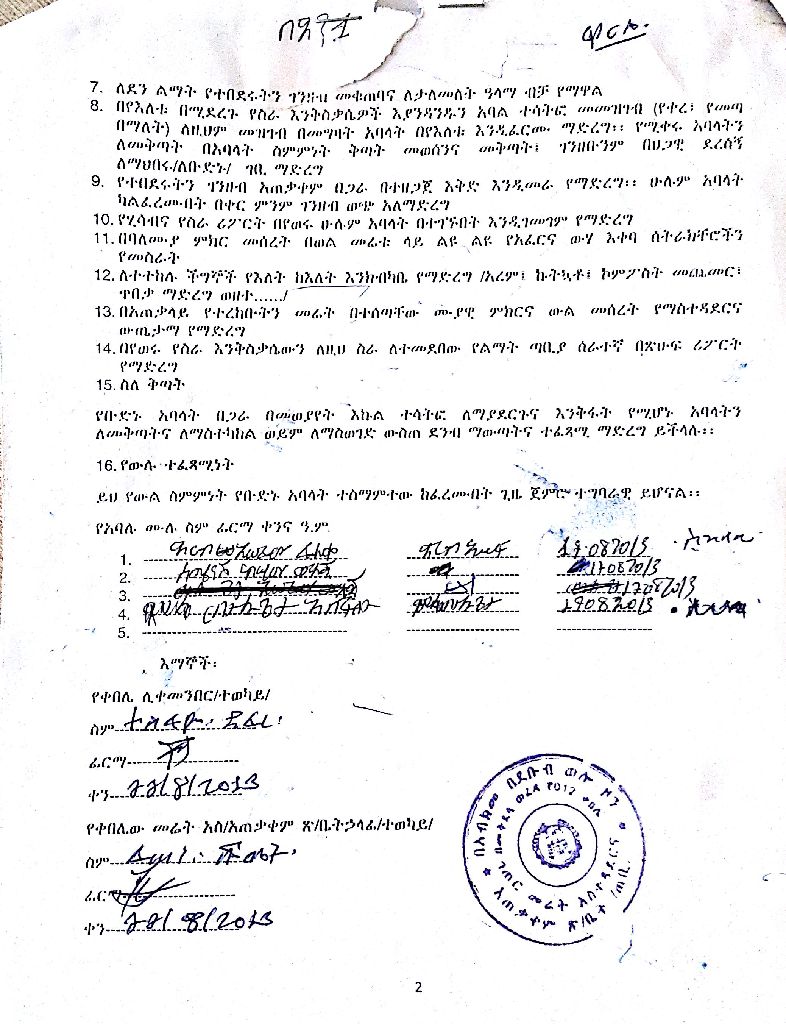 7. ለደን ልማት የተበደሩትን ገንዘብ መቁጠባና ለታለመለት ዓላማ ብቻ የማዋል
8. በየእለቱ በሚደረጉ የስራ እንቅስቃሴዎች እያንዳንዱን አባል ተሳትፎ መመዝገብ (የቀረ፣ የመጣ
በማለት) ለዚህም መዝገብ በመያዝ አባላት በየእለቱ እንዲፈርሙ ማድረግ፡፡ የሚቀሩ አባላትን
ለመቅጣት በአባላት ስምምነት ቅጣት መወሰንና መቅጣት፣ ገንዘቡንም በህጋዊ ደረሰኝ
ለማህበሩ/ለቡድኑ/ ገቢ ማድረግ
9. የተበደሩትን ገንዘብ አጠቃቀም በጋራ በተዘጋጀ እቅድ እንዲመራ የማድረግ፡፡ ሁሉም አባላት
ካልፈረሙበት በቀር ምንም ገንዘብ ወጭ አለማድረግ
10. የሂሳብና የስራ ሪፖርት በየወሩ ሁሉም አባላት በተገኙበት እንዲገመገም የማድረግ
11. በባለሙያ ምክር መሰረት በወል መሬቱ ላይ ልዩ ልዩ የአፈርና ውሃ እቀባ ስትራክቸሮችን
የመስራት
12. ለተተከሉ ችግኞች የእለት ከእለት እንክብካቤ የማድረግ /አረም፣ ኩትኳቶ፣ ኮምፖስት መጨመር፣
ጥበቃ ማድረግ ወዘተ....../
13. በአጠቃላይ የተረከቡትን መሬት በተሰጣቸው ሙያዊ ምክርና ውል መሰረት የማስተዳደርና
ውጤታማ የማድረግ
14. በየወሩ የስራ እንቅስቃሴውን ለዚህ ስራ ለተመደበው የልማት ጣቢያ ሰራተኛ በጽሁፍ ሪፖርት
የማድረግ
15. ስለ ቅጣት
የቡድኑ አባላት በጋራ በመወያየት እኩል ተሳትፎ ለማያደርጉና እንቅፋት የሚሆኑ አባላትን
ለመቅጣትና ለማስተካከል ወይም ለማስወገድ ውስጠ ደንብ ማውጣትና ተፈጻሚ ማድረግ ይችላሉ፡፡
16. የውሉ ተፈጻሚነት
ይህ የውል ስምምነት የቡድኑ አባላት ተስማምተው ከፈረሙበት ጊዜ ጀምሮ ተግባራዊ ይሆናል፡፡
የአባሉ ሙሉ ስም ፊርማ ቀንና ዓ.ም
1.
2. 17082013
3. 17082013
4. 19082013
5.
እማኞች፡
የቀበሌ ሊቀመንበር/ተወካይ/
ስም ተስፋው
ፊርማ
ቀን 22/8/2013
የቀበሌው መሬት አስ/አጠቃቀም ጽ/ቤትኃላፊ/ተወካይ/
ስም
ፊርማ
ቀን 22/8/2013
በአብክመ በደቡብ ወሎ ዞን
ገጠር መሬት አስተዳደርና
አጠቃቀም ጽ/ቤት
2